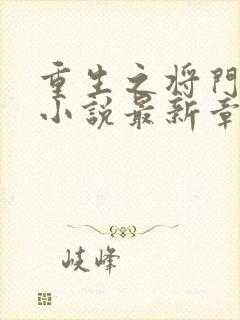 重生之将门
小说最新章
岐峰